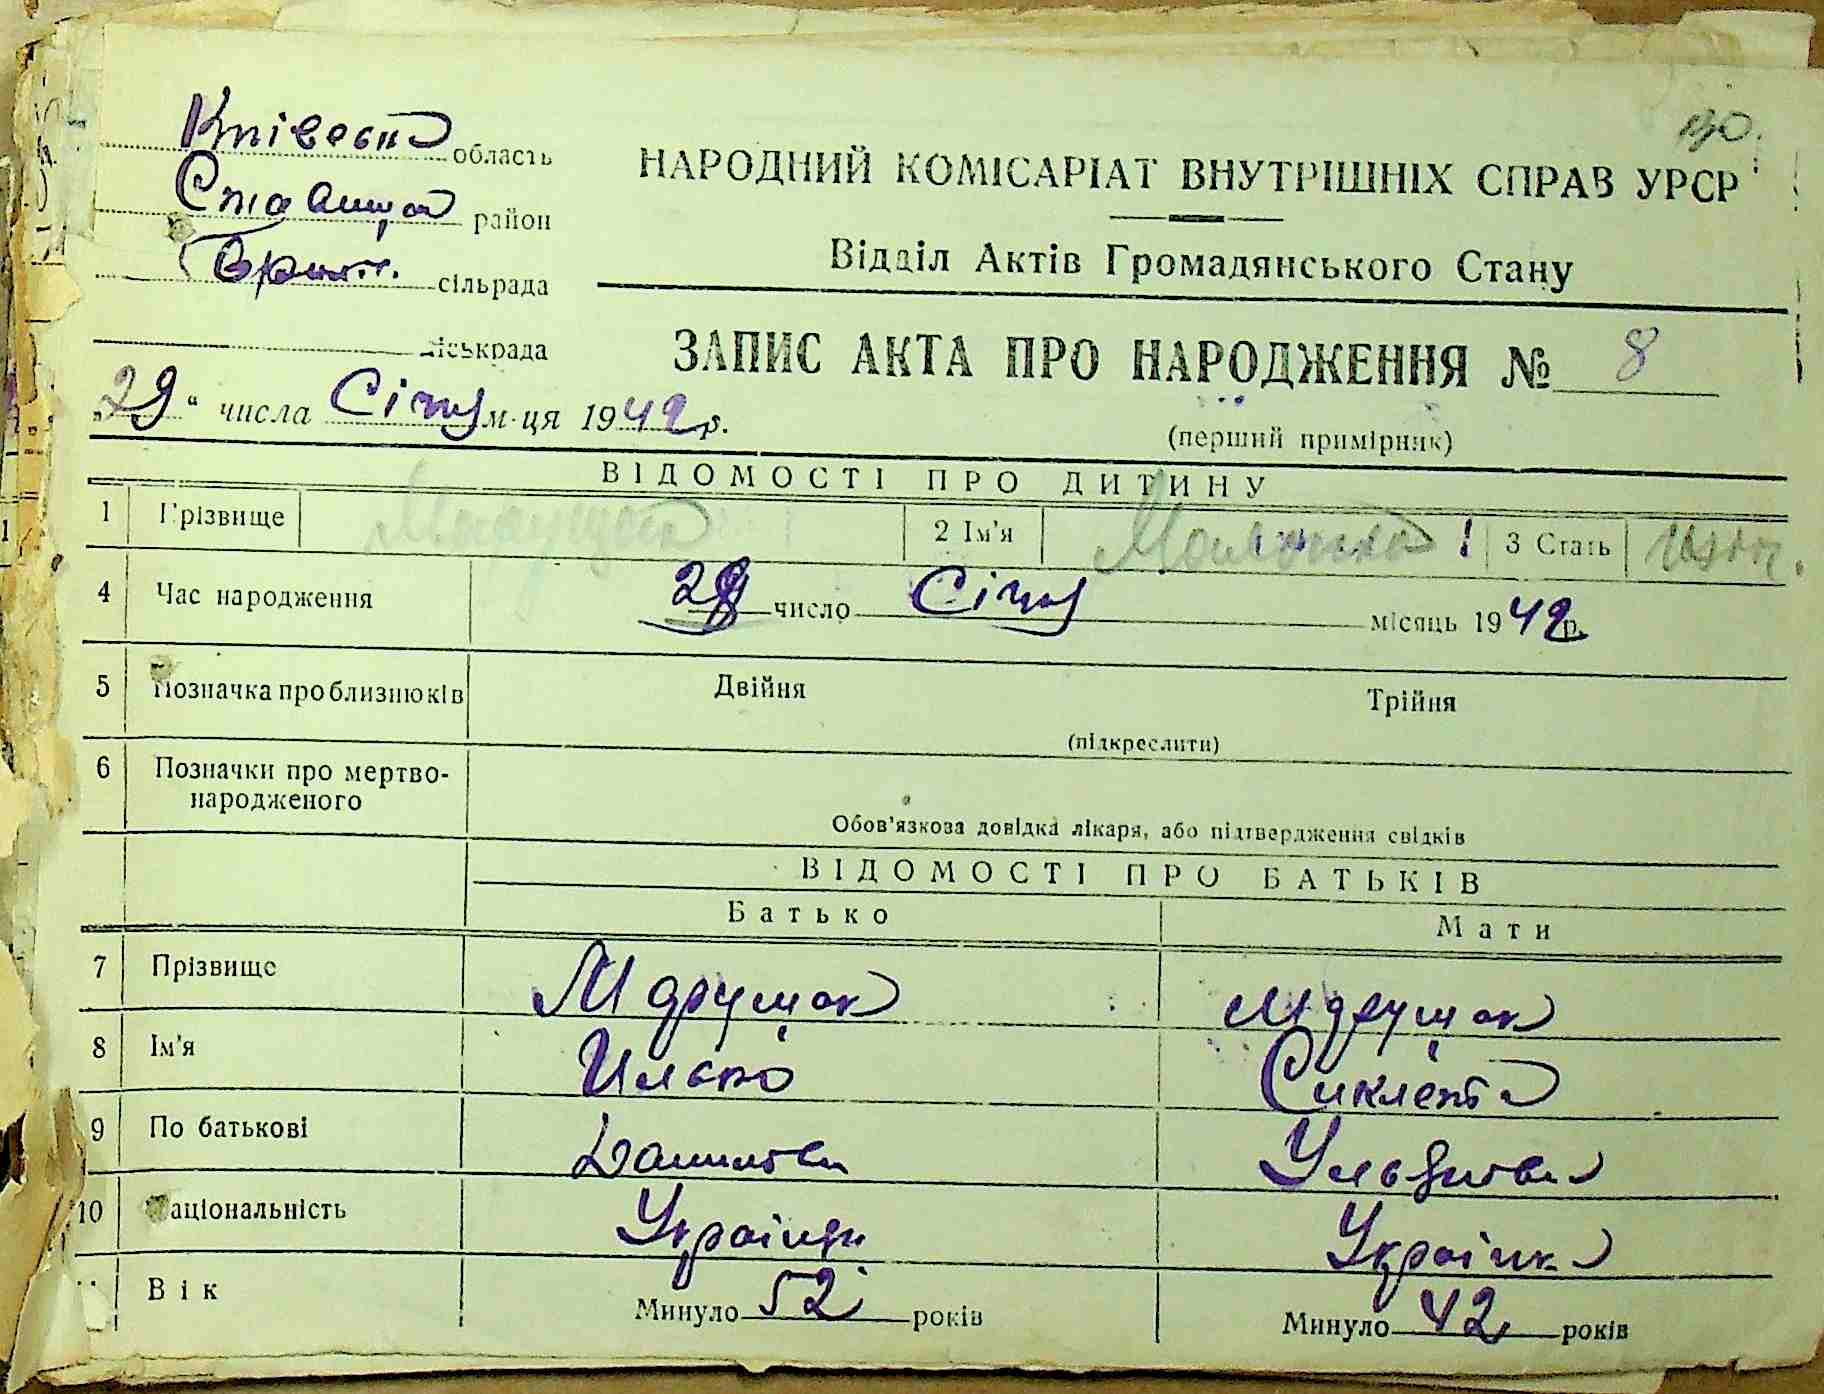 130.
Київська область
НАРОДНИЙ КОМІСАРІАТ ВНУТРІШНІХ СПРАВ УРСР
район
Відділ Актів Громадянського Стану
сільрада
міськрада
ЗАПИС АКТА ПРО НАРОДЖЕННЯ № 8
„29“ числа Січня м-ця 1942 р.
(перший примірник)
ВІДОМОСТІ ПРО ДИТИНУ
1 Прізвище 2 Ім'я 3 Стать
4 Час народження число Січня місяць 1942 р.
5 Позначка про близнюків Двійня Трійня
(підкреслити)
6 Позначки про мертво-
народженого
Обов'язкова довідка лікаря, або підтвердження свідків
ВІДОМОСТІ ПРО БАТЬКІВ
Батько Мати
7 Прізвище
8 Ім'я Илько Сиклета
9 По батькові
10 Національність Українець Українка
Вік Минуло 52 років Минуло 42 років